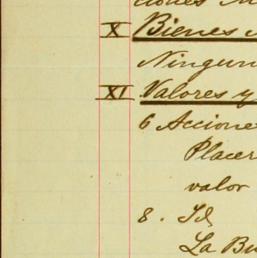 ciones
X Bienes
Ningun
XI Valores y
6 Accione
Placer
valor
8. Id.
La Bu